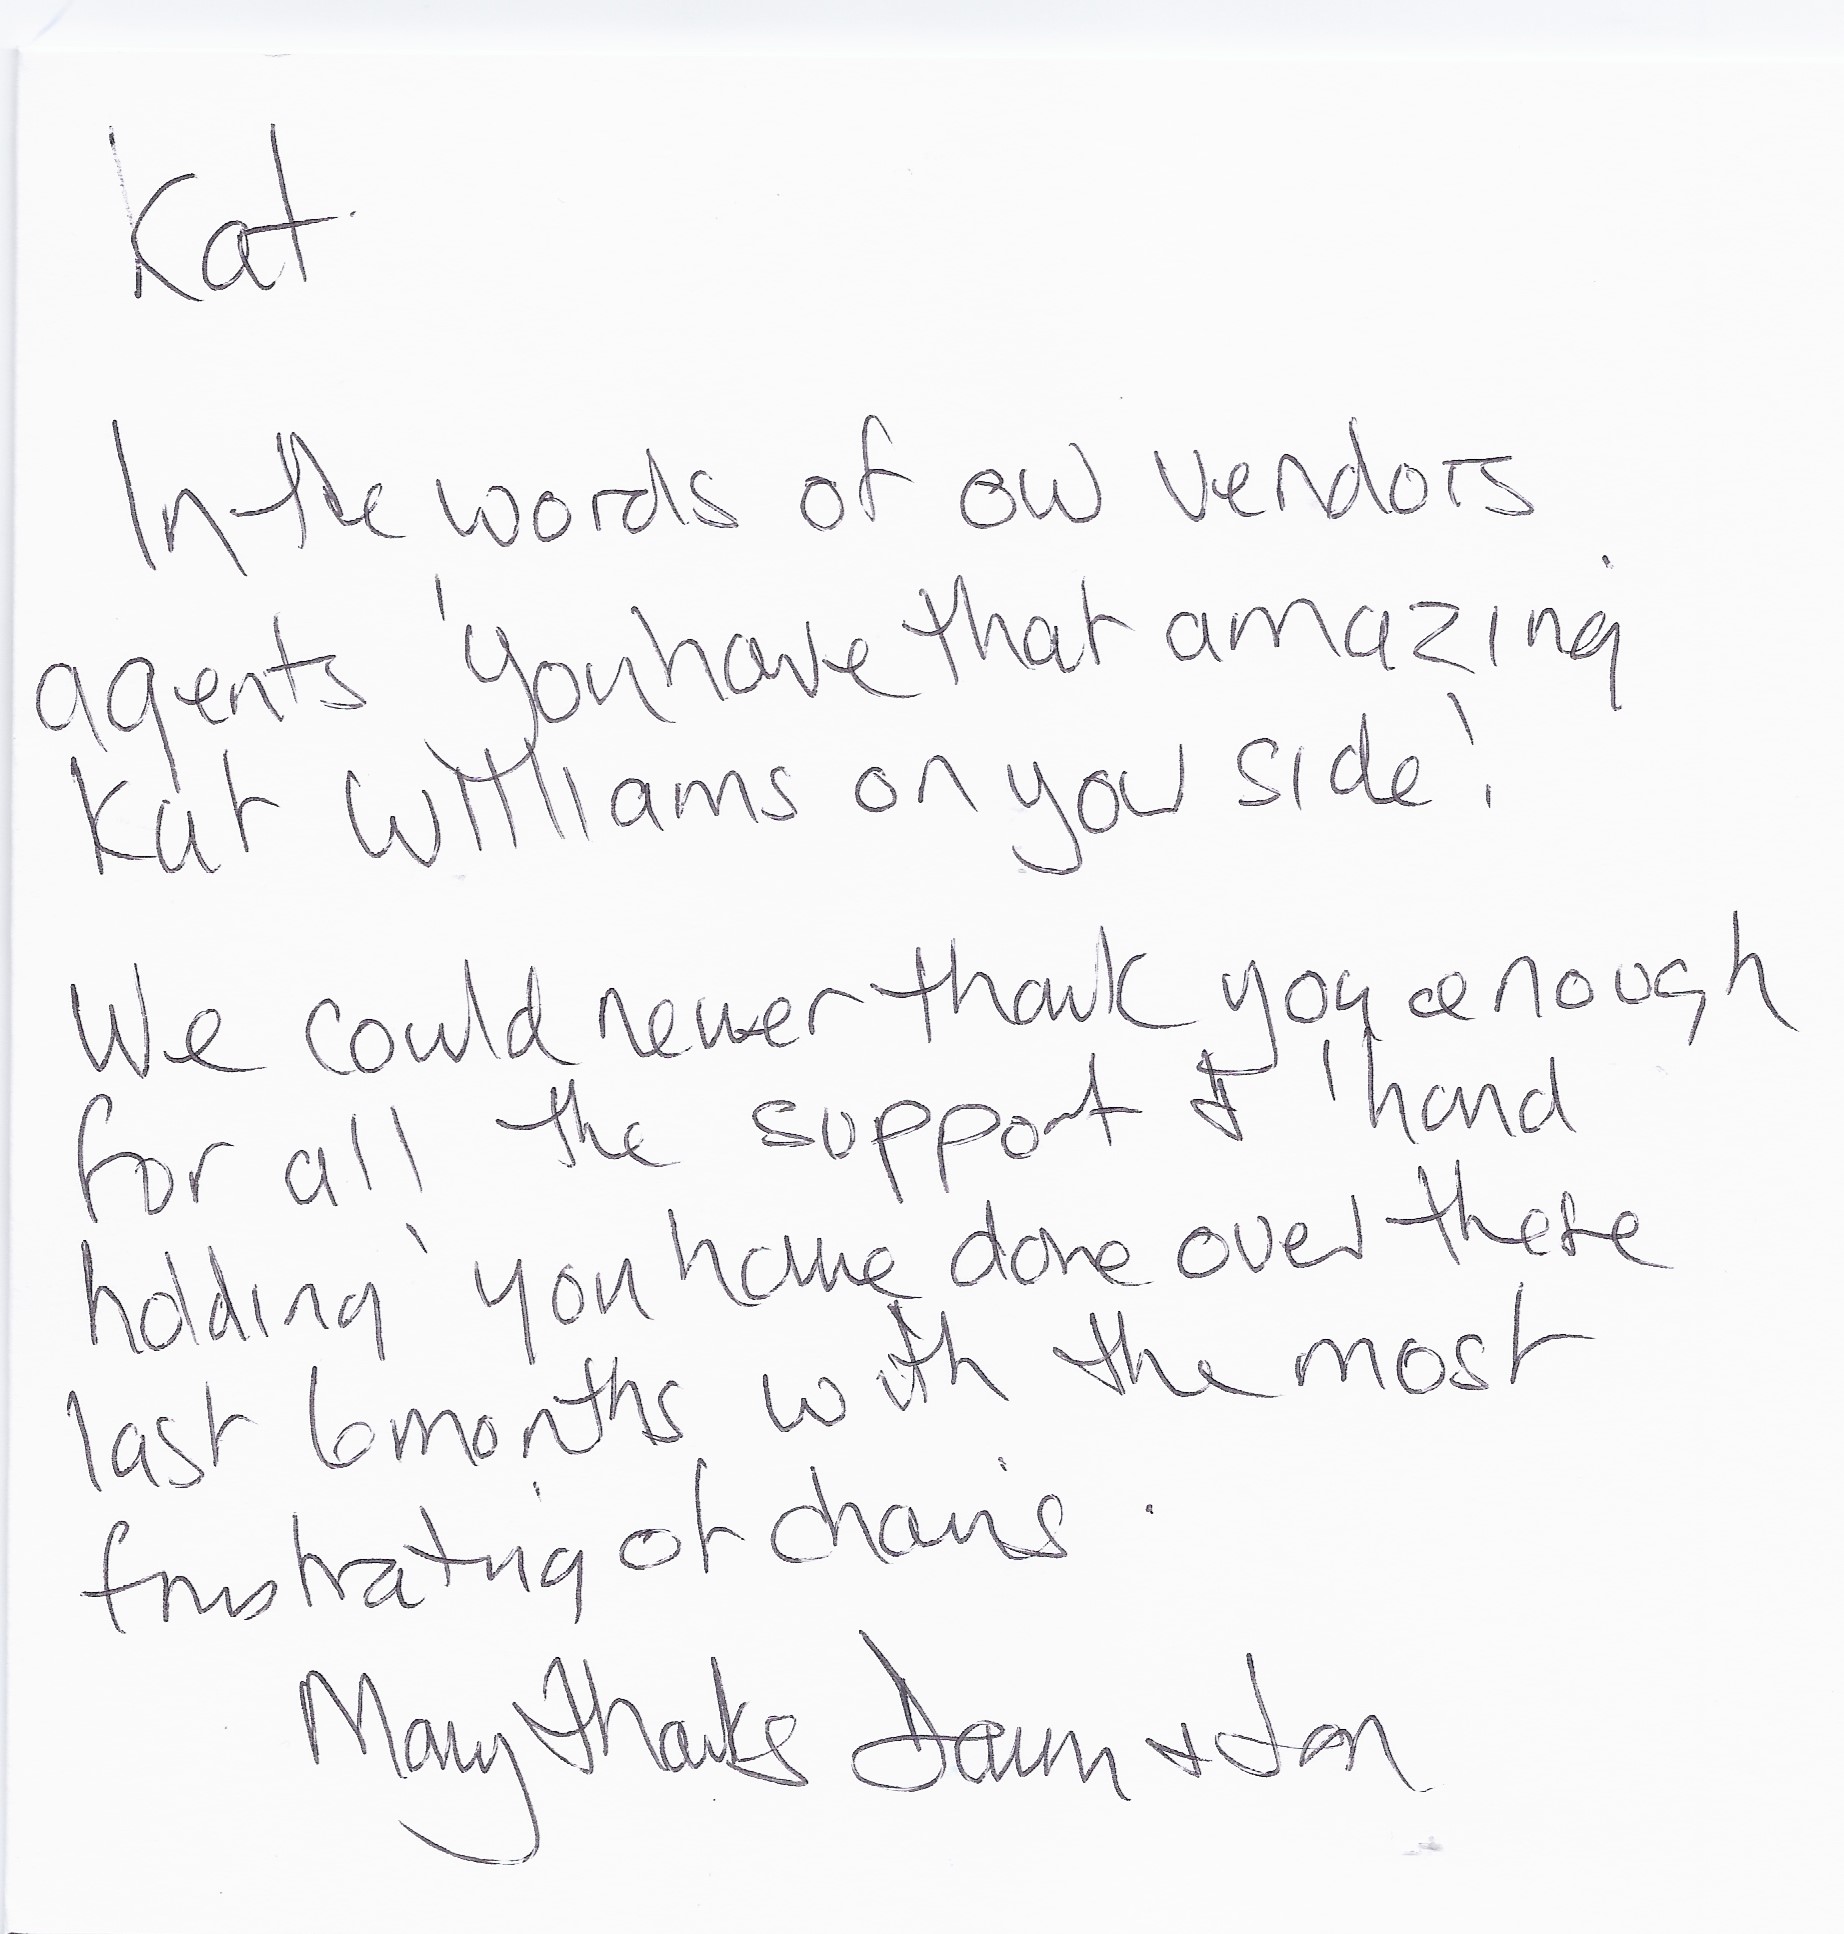 Kat
In the words of our vendors
agents 'you have that amazing
Kat Williams on your side'!
We could never thank you enough
for all the support & 'hand
holding' you have done over these
last 6 months with the most
frustrating of chains.
Many thanks Dawn & Jon